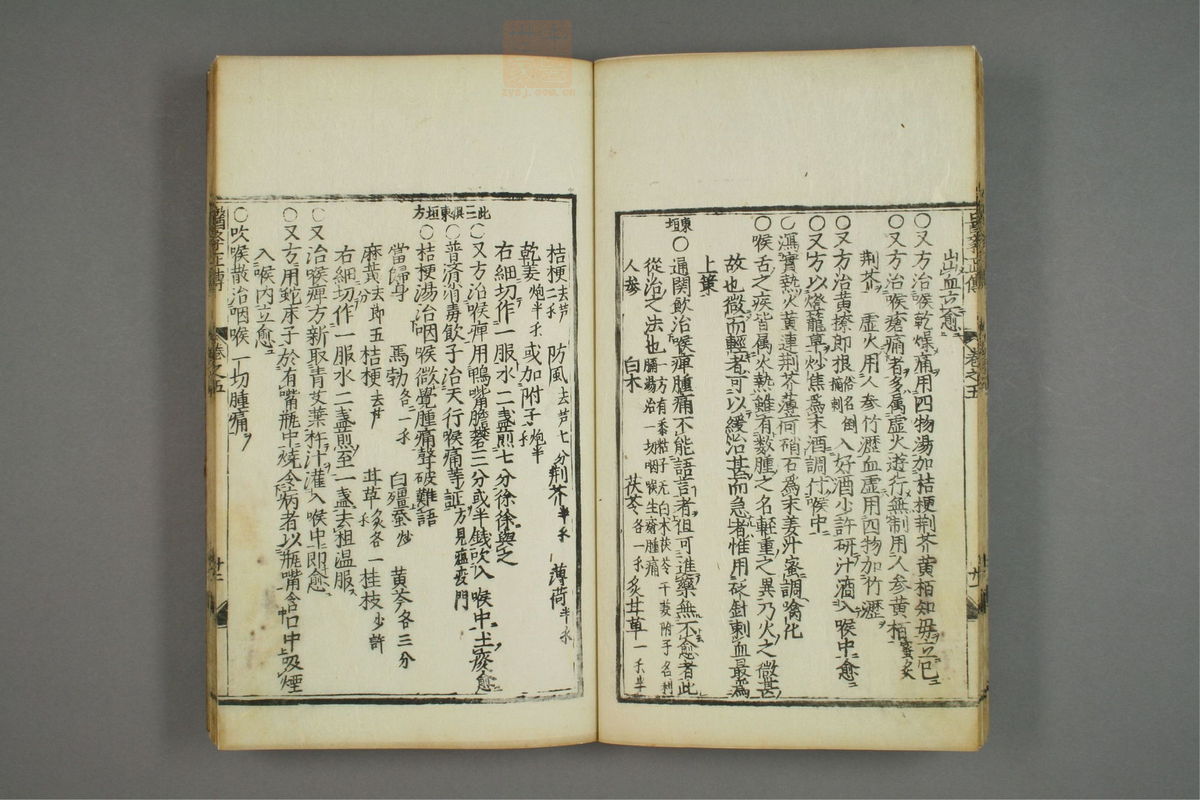 出血立愈
○又方治喉乾燥痛用四物湯加桔梗荊芥黃栢知毋立已
○又方治喉瘡痛者多属虚火遊行無制用人参黃栢蜜炙
荊芥 虚火用人参竹瀝血虚用四物加竹瀝
○又方治黃擦即根俗名倒摘刺入好酒少許研汁滴入喉中愈
○又方以燈籠草炒焦爲末酒調付喉中
○瀉實熱火黃連荊芥薄荷硝石爲末姜汁蜜調噙化
○喉舌之疾皆属火熱雖有数腫之名軽重之異乃火之微甚
故也微而軽者可以緩治甚而急者惟用砭針刺血最爲
上策
東垣○通関飲治喉痺腫痛不能語言者但可進藥無不愈者此
從治之法也一方有黍粘子无白术茯苓干葽附子名利膈湯治一切咽喉生瘡腫痛
人参 白朮 茯苓各一銭 炙甘草一銭半
桔梗去芦二銭 防風去芦七分 荊芥半銭 薄荷半銭
乾姜炮半銭 或加附子炮半銭
右細切作一服水二盞煎七分徐徐與之
○又方治喉痺用鴨嘴膽礬三分或半錢吹入喉中土痰愈
此三俱東垣方○普済消毒飲子治天行喉痛等証方見瘟疫門
○桔梗湯治咽喉微覺腫痛聲破難語
當帰身 馬勃各一銭 白殭蚕炒 黃芩各三分
麻黃去節五分 桔梗去芦 甘草炙各一銭 桂枝少許
右細切作一服水二盞煎至一盞去粗温服
○又治喉痺方新取青艾葉杵汁灌入喉中即愈
○又方用蛇床子於有嘴瓶中燒令病者以瓶嘴含口中吸煙
入喉内立愈
○吹喉散治咽喉一切腫痛
醫學正傳 卷之五 廿一
醫學正傳 卷之五 廿二
zysj.com.cn